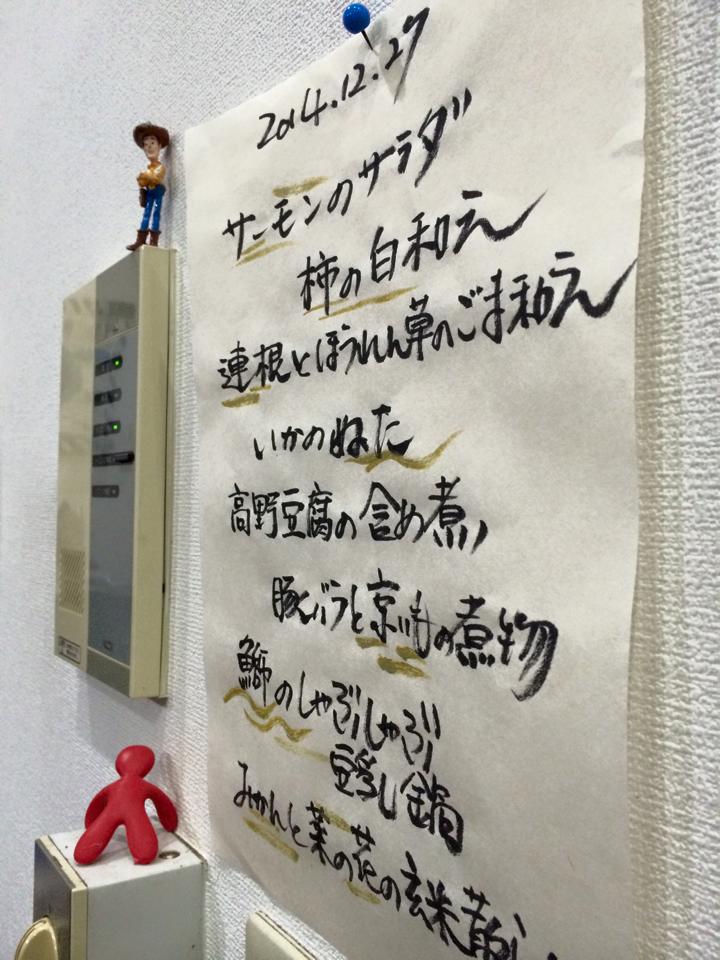 2014.12.27
サーモンのサラダ
柿の白和え
連根とほうれん草のごま和え
いかのぬた
高野豆腐の含め煮
豚バラと京いもの煮物
鰤のしゃぶしゃぶ
豆乳鍋
みかんと菜の花の玄米